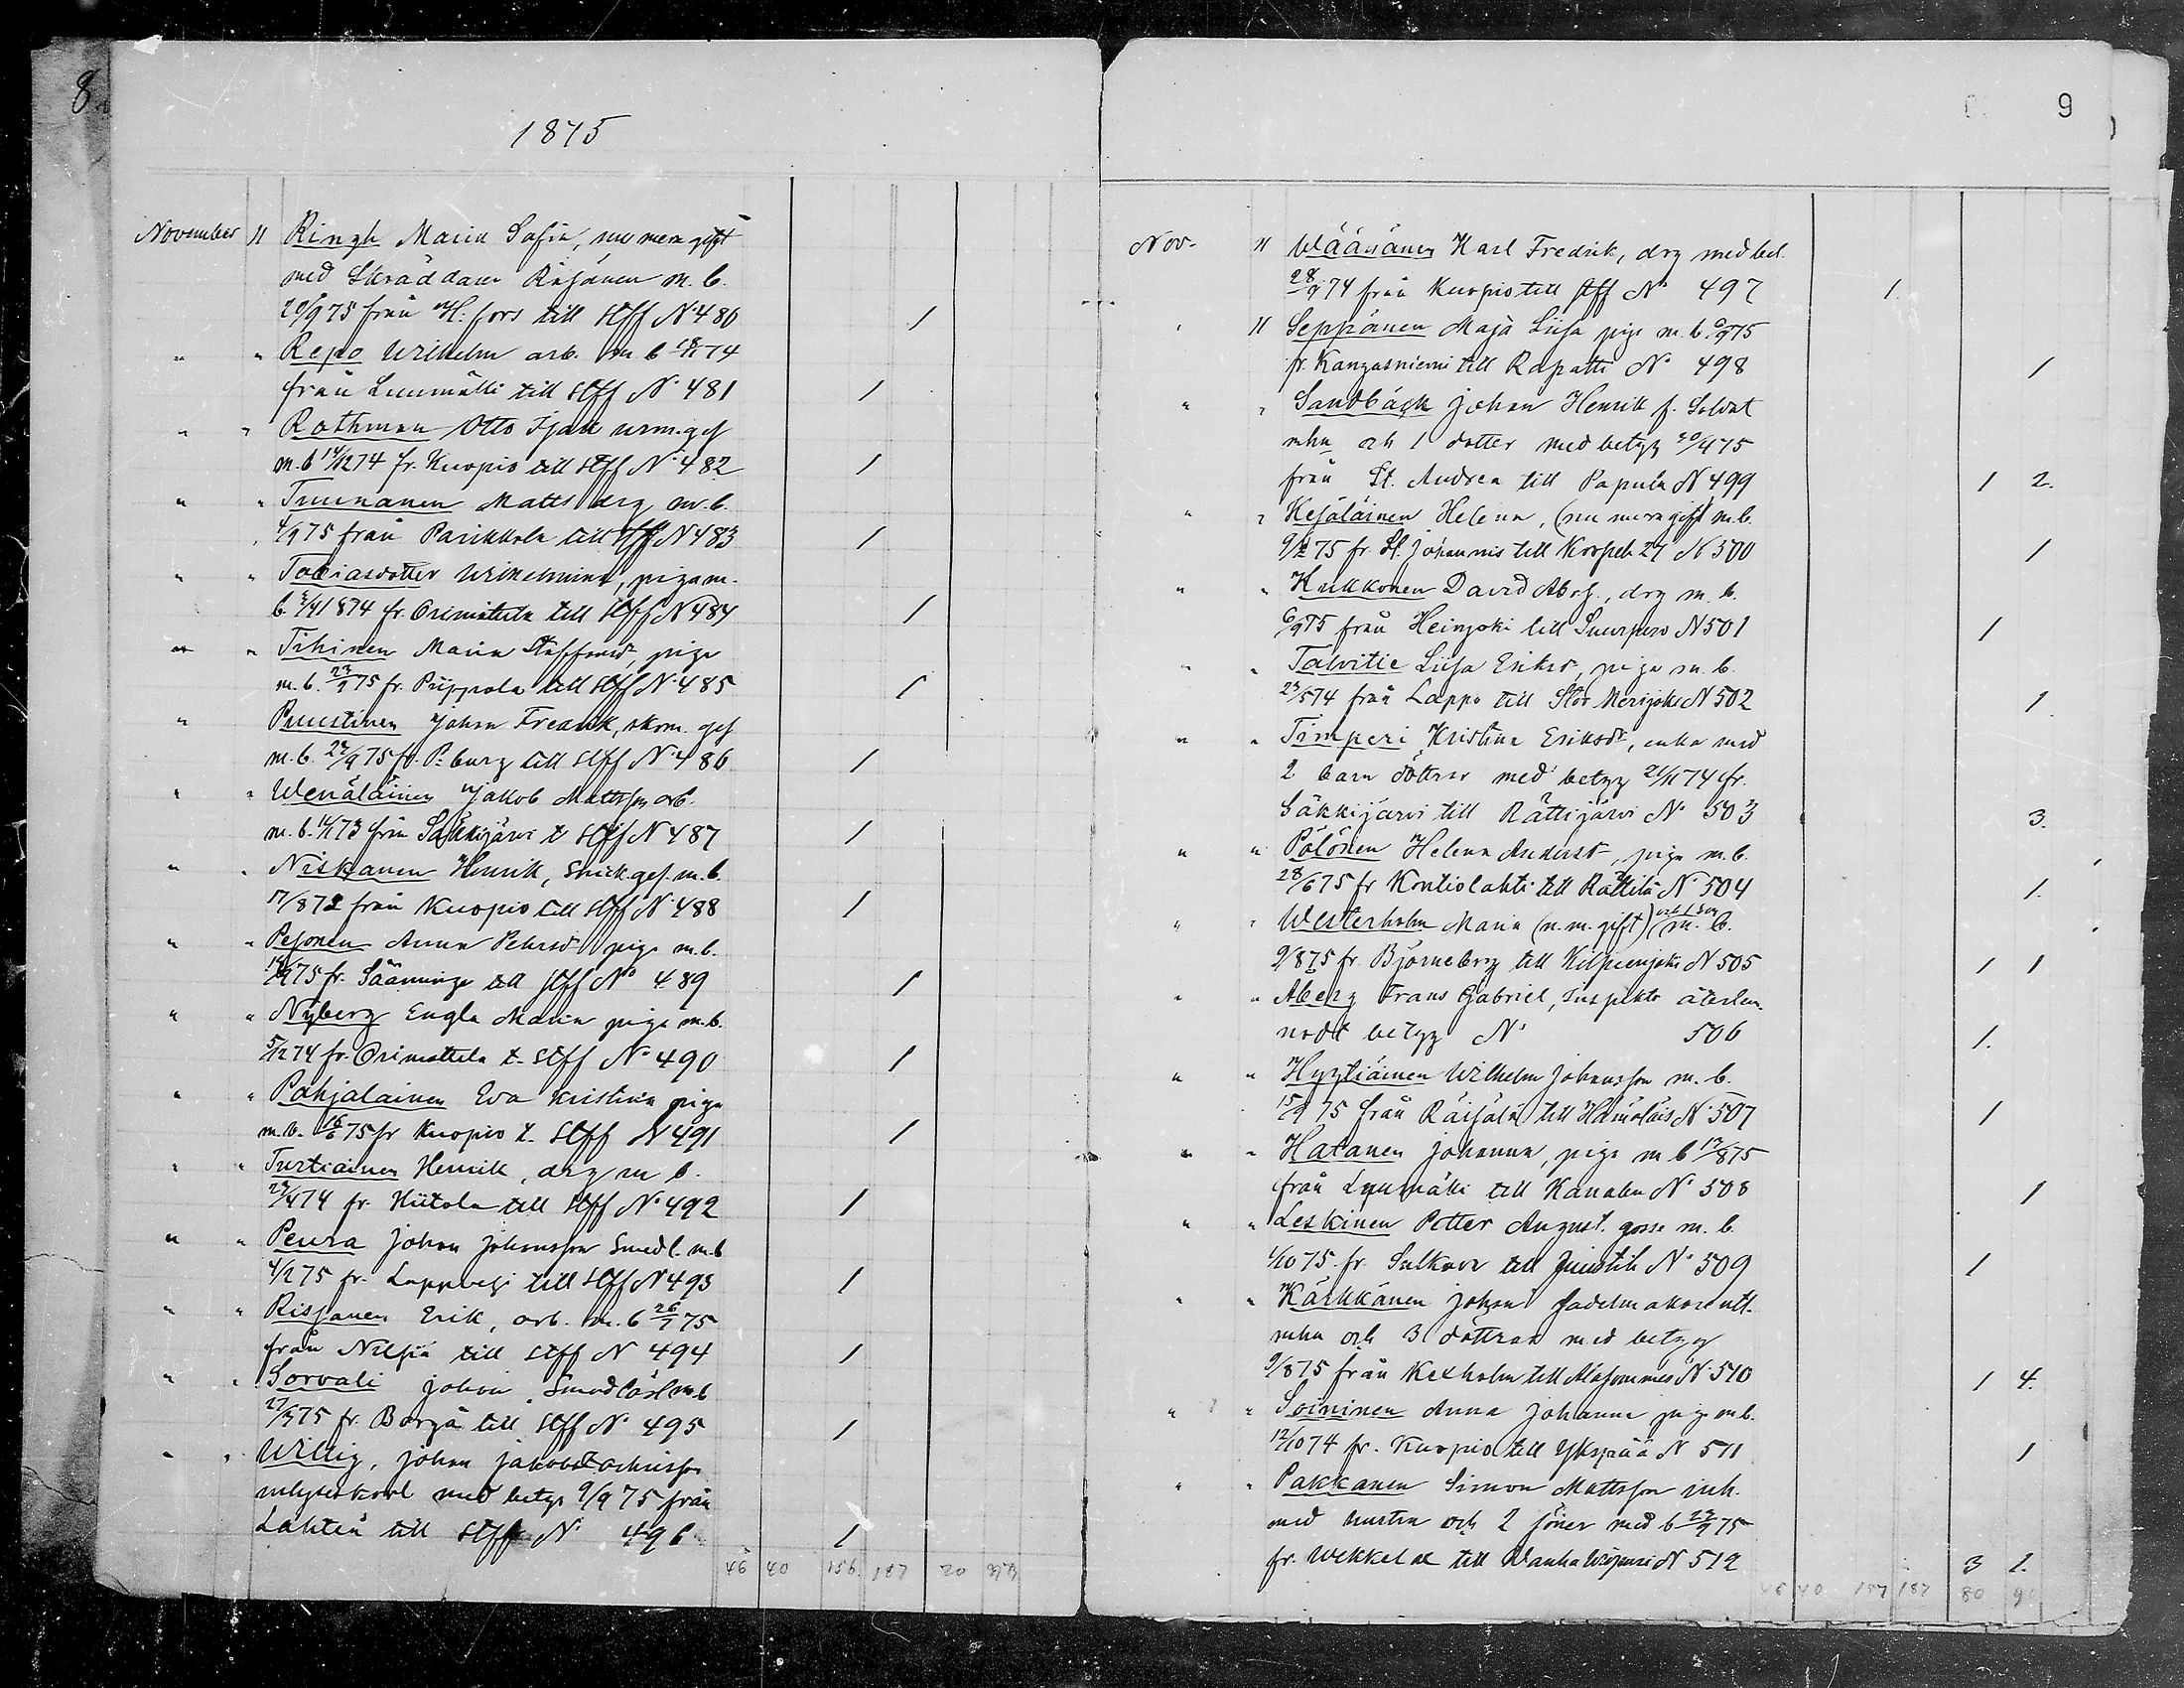 8.
1875
November 11 Ringh Maria Sofia, nu mera gift
med Skräddaren Räsänen m. b.
20/9 75 från H:fors till Stff No 480 1
" " Repo Wilhelm arb. m b 18/11 74
från Luumäki till Stff No 481 1
" " Rothman Otto Isak urm. ges
m. b 14/12 74 fr. Kuopio till Stff No 482 1
" " Tuunanen Matts drg m. b.
4/9 75 från Parikkala till Stff N 483 1
" " Tobiasdotter Wilhelmina, piga m.
b. 1874 fr. Orimattila till Stff N 484 1
" " Tihinen Maria Staffansdr, piga
m. b. 75 fr. Piippola till Stff No 485 1
" Puustinen Johan Fredrik, skom. ges
m. b. 22/9 75 fr. P:burg till Stff No 486 1
" " Wenäläinen Jakob Mattsson arb.
m. b. 73 från Säkkijärvi t Stff N 487 1
" " Niskanen Henrik, Snick. ges. m. b.
17/8 72 från Kuopio till Stff No 488 1
" " Pesonen Anna Pehrsdr piga m. b.
75 fr. Sääminge till Stff No 489 1
" " Nyberg Engla Maria piga m. b.
5/12 74 fr. Orimattila t. Stff No 490 1
" " Pohjalainen Eva Kristina piga
m. b. 16/6 75 fr Kuopio t. Stff N 491 1
" " Turtiainen Henrik, drg m b.
27/4 74 fr. Hiitola till Stff No 492 1
" " Peura Johan Johansson Smedl. m. b
4/2 75 fr. Lappvesi till Stff N 493 1
" " Rissanen Erik, arb. m. b 75
från Nilsiä till Stff N 494 1
" " Sorvali Johan Smedlärl m. b
75 fr. Borgå till Stff No 495 1
" " Willig, Johan Jakob
med betyg 9/9 75 från
Lahtis till Stff No 496 1
46 40 156. 187 20
9
Nov. 11 Wäänänen Karl Fredrik, drg med bet.
28/9 74 från Kuopio till Stff No 497 1.
" 11 Seppänen Maja Liisa piga m. b. 75
fr. Kangasniemi till Rapatti No 498 1
" " Sandbäck Johan Henrik f. Soldat
mhu och 1 dotter med betyg 20/4 75
från St. Andrea till Papula N 499 1 2.
" " Kejäläinen Helena, (nu mera gift m. b.
75 fr. St. Johannis till 27 N 500 1
" " Kukkonen David Abrs., drg m. b.
6/9 75 från Heinjoki till Suurpero N 501 1
" " Talvitie Liisa Eriksdr, piga m. b.
23/5 74 från Lappo till Stor Merijoki N 502 1
" " Timperi Kristina Eriksdr, enka med
2 barn döttrar med betyg 21/11 74 fr.
Säkkijärvi till Rättijärvi No 503 3.
" " Pölönen Helena Andersdr, piga m. b.
28/6 75 fr Kontiolahti till Rättilä No 504 1.
" " Westerholm Maria (n. m. gift) och 1 son m. b.
9/8 75 fr. Björneborg till Kilpeenjoki N 505 1 1
" " Åberg Frans Gabriel, Inspektor återlem-
nadt betyg No 506 1.
" " Hyytiäinen Wilhelm Johansson m. b.
15/9 75 från Räisälä till Hämäläis No 507 1
" " Hatanen Johanna, piga m b 17/8 75
från Luumäki till Kanalen No 508 1
" " Leskinen Petter August. gosse m. b.
1/10 75. fr. Sulkava till Juustila No 509 1
" " Kärkkänen Johan Sadelmakare
mhu och 3 döttrar med betyg
9/8 75 från Kexholm till Alasommes No 510 1 4.
" " Soininen Anna Johanna piga m b.
12/10 74 fr. Kuopio till Ykspää N 511 1
" " Pakkanen Simon Mattsson inh.
med hustru och 2 söner med b 22/9 75
fr. Wekkelax till Wanha Wiipuri N 512 3 1.
46 40 157 187 80 9